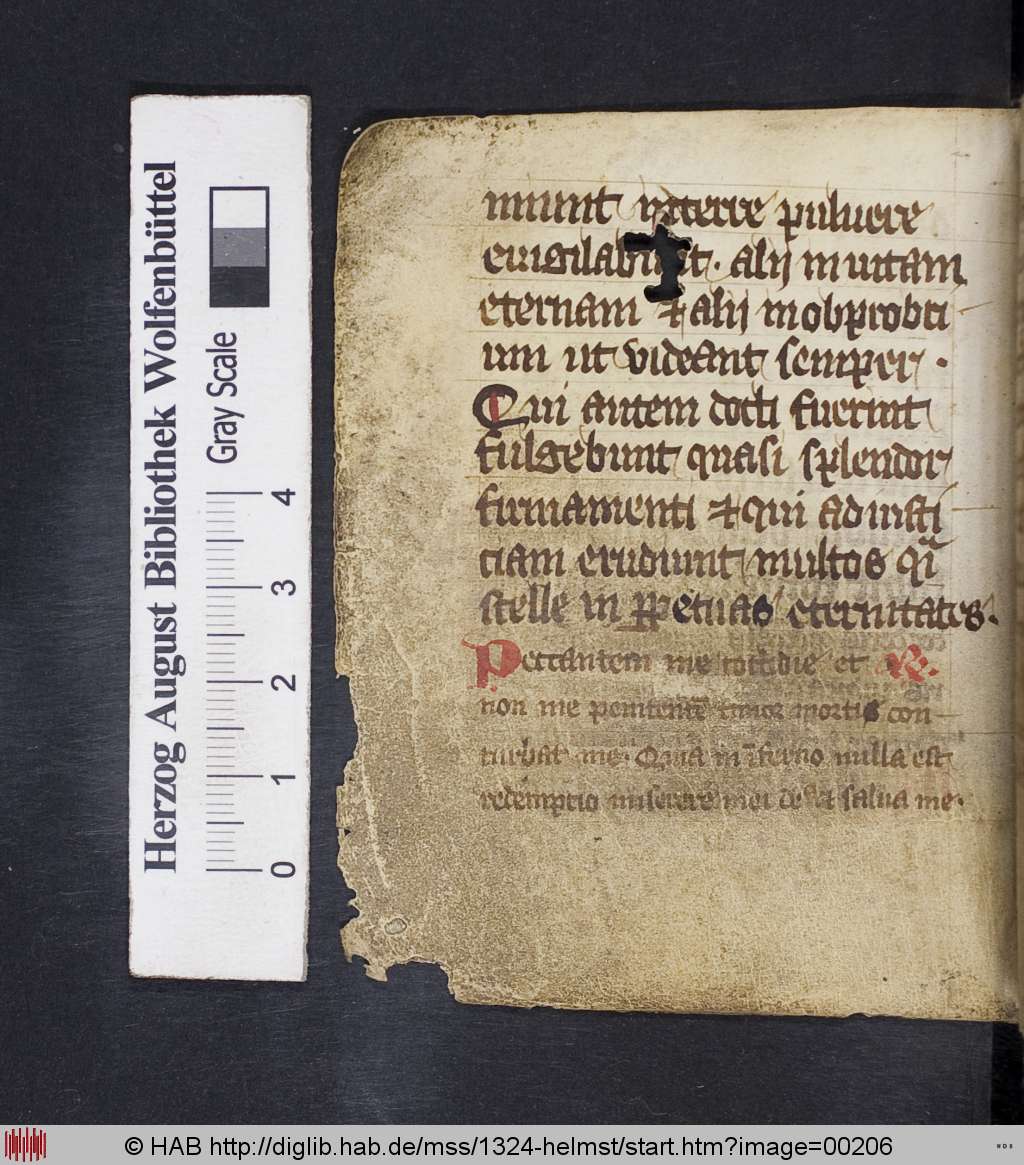 Herzog August Bibliothek Wolfenbüttel
Gray Scale
0 1 2 3 4
miunt in terre puluere
euigilabunt. alij in uitam
eternam et alij in obprobri
um ut videant semper.
Qui autem docti fuerint
fulgebunt quasi splendor
firmamenti et qui ad iusti
ciam erudiunt multos q̅i
stelle in ꝑpetuas eternitates.
Peccantem me cottidie et R.
non me penitente̅ timor mortis con
turbat me. Quia in i̅ferno nulla est
redemptio miserere mei de et salua me.
© HAB http://diglib.hab.de/mss/1324-helmst/start.htm?image=00206